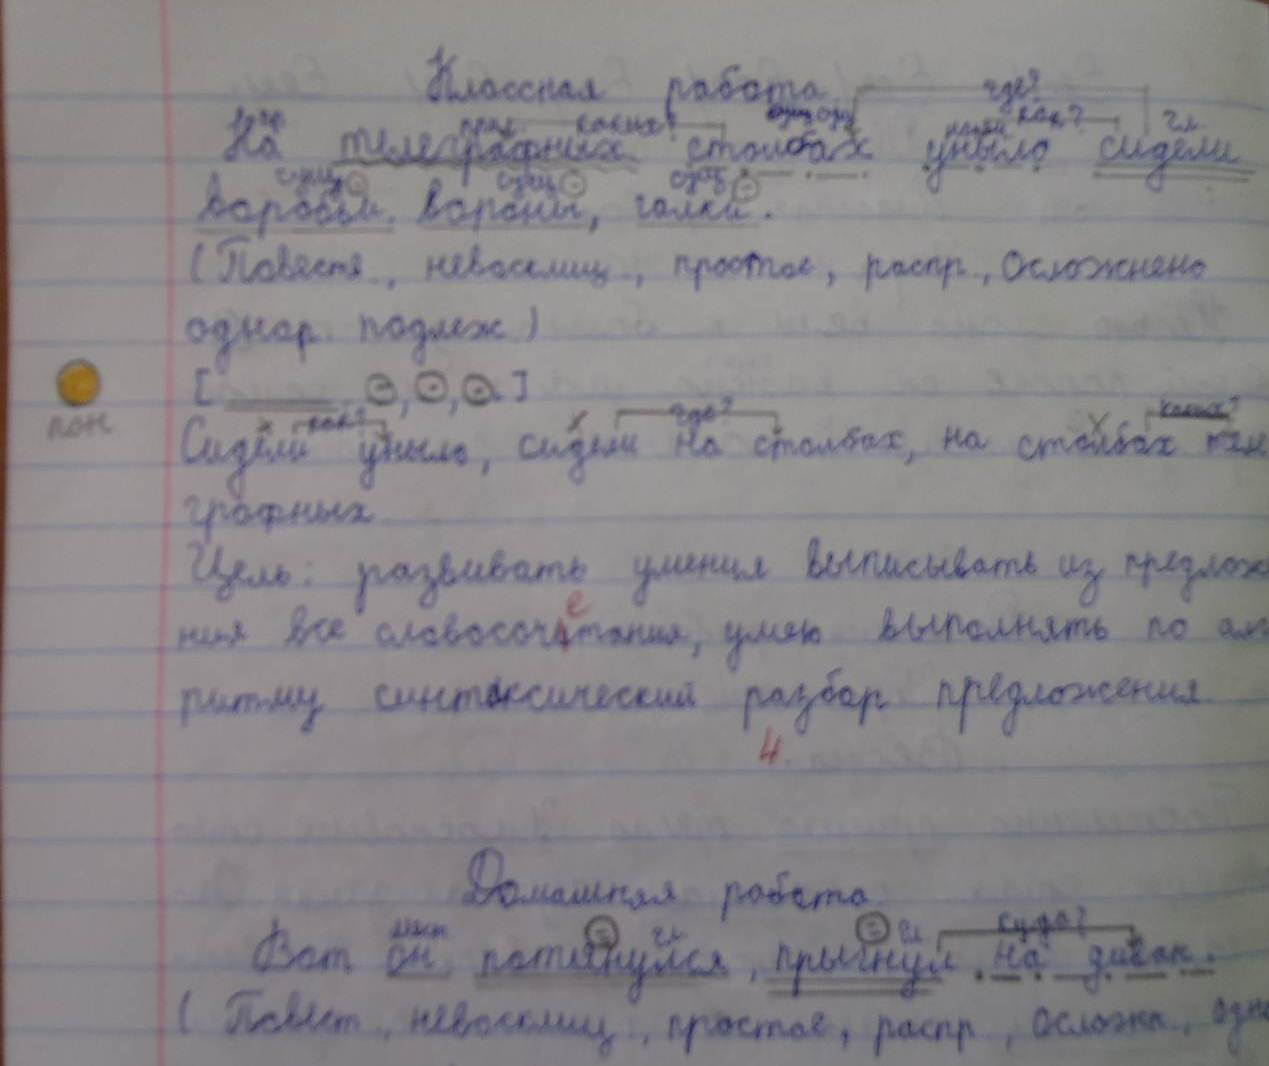 Классная работа.
где?
прил. каких? сущ нареч как? гл.
На телеграфных столбах уныло сидели
сущ сущ сущ
воробьи, вороны, галки.
(Повеств, невосклиц, простое, распр, осложнено
однор. подлеж)
[ , , ]
как? где? каких?
Сидели уныло, сидели на столбах, на столбах теле
графных
Цель: развивать умения выписывать из предложе
е
ния все словосочитания, умею выполнять по алг
ритму синтаксический разбор предложения
4.
пон
Домашняя работа
мест гл гл куда?
Вот он потянулся, прыгнул на диван.
(Повест, невосклиц, простое, распр, осложн, одно